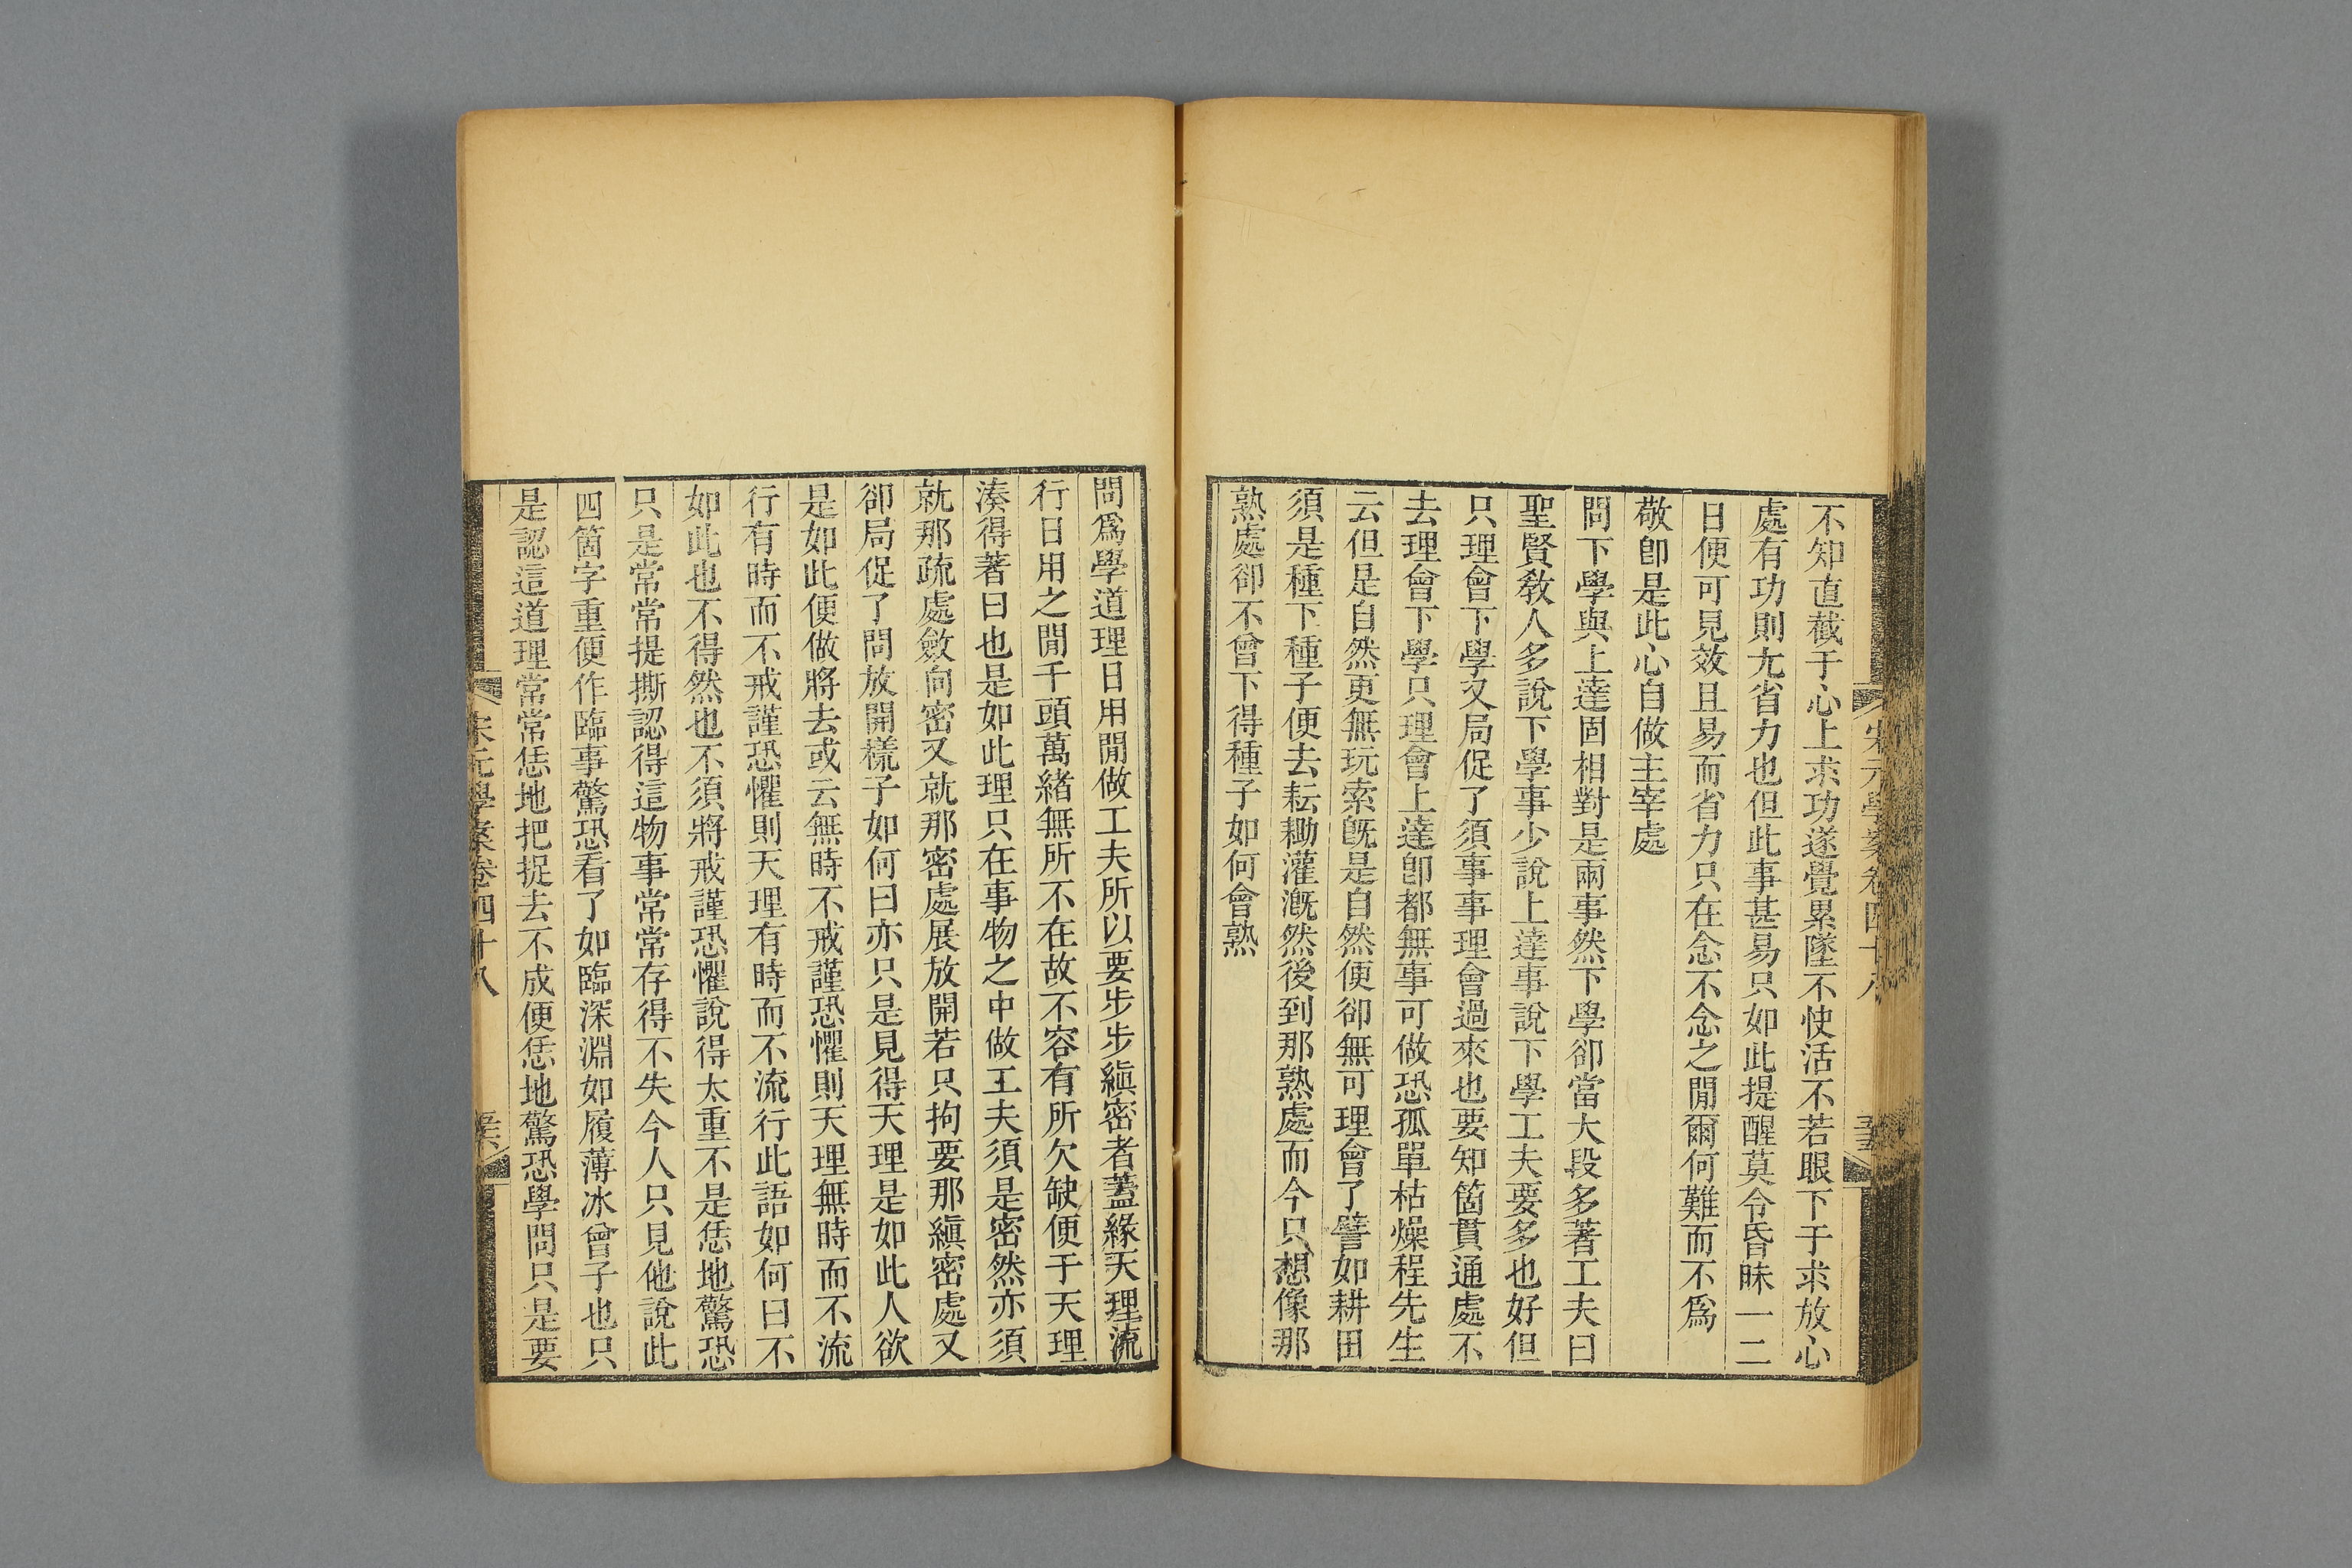 宋元學案卷四十八
不知直截于心上求功遂覺累墜不快活不若眼下于求放心
處有功則尤省力也但此事甚易只如此提醒莫令昏昧一二
日便可見效且易而省力只在念不念之閒爾何難而不爲
敬卽是此心自做主宰處
問下學與上達固相對是兩事然下學卻當大段多著工夫曰
聖賢敎人多說下學事少說上達事說下學工夫要多也好但
只理會下學又局促了須事事理會過來也要知箇貫通處不
去理會下學只理會上達卽都無事可做恐孤單枯燥程先生
云但是自然更無玩索旣是自然便卻無可理會了譬如耕田
須是種下種子便去耘耡灌漑然後到那熟處而今只想像那
熟處卻不曾下得種子如何會熟
問爲學道理日用閒做工夫所以要步步縝密者蓋緣天理流
行日用之閒千頭萬緒無所不在故不容有所欠缺便于天理
湊得著曰也是如此理只在事物之中做工夫須是密然亦須
就那疏處斂向密又就那密處展放開若只拘要那縝密處又
卻局促了問放開樣子如何曰亦只是見得天理是如此人欲
是如此便做將去或云無時不戒謹恐懼則天理無時而不流
行有時而不戒謹恐懼則天理有時而不流行此語如何曰不
如此也不得然也不須將戒謹恐懼說得太重不是恁地驚恐
只是常常提撕認得這物事常常存得不失今人只見他說此
四箇字重便作臨事驚恐看了如臨深淵如履薄冰曾子也只
是認這道理常常恁地把捉去不成便恁地驚恐學問只是要
宋元學案卷四十八